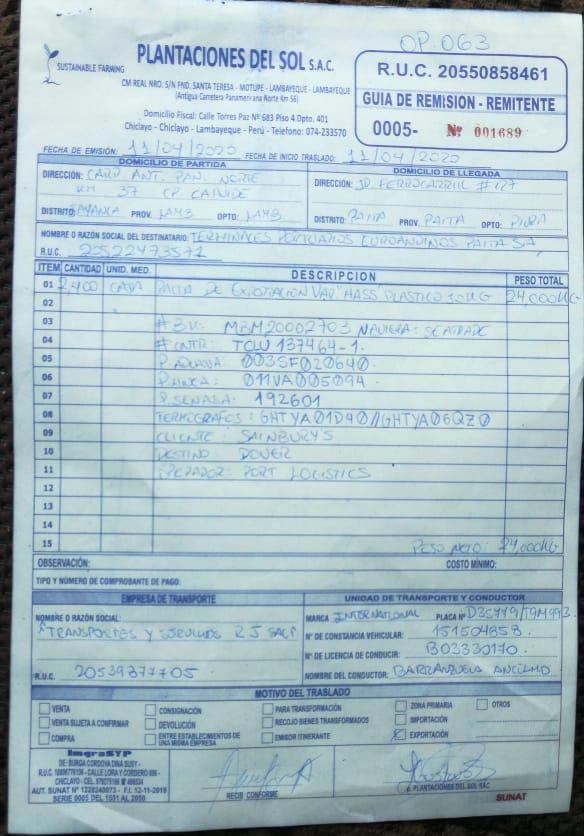 OP. 063
PLANTACIONES DEL SOL S.A.C.
SUSTAINABLE FARMING
CM REAL NRO. S/N FND. SANTA TERESA - MOTUPE - LAMBAYEQUE - LAMBAYEQUE
(Antigua Carretera Panamericana Norte Km 56)
Domicilio Fiscal: Calle Torres Paz Nº 683 Piso 4 Dpto. 401
Chiclayo - Chiclayo - Lambayeque - Perú - Telefono: 074-233570
R.U.C. 20550858461
GUIA DE REMISION - REMITENTE
0005- Nº 001689
FECHA DE EMISIÓN: 11/04/2020 FECHA DE INICIO TRASLADO: 11/04/2020
DOMICILIO DE PARTIDA
DIRECCIÓN: CARR ANT. PAN. NORTE
KM 37 CP
DISTRITO: PROV. LAMB DPTO: LAMB
DOMICILIO DE LLEGADA
DIRECCIÓN: JD FERROCARRIL #127
DISTRITO: PAITA PROV. PAITA DPTO: PIURA
NOMBRE O RAZÓN SOCIAL DEL DESTINATARIO: TERMINALES PORTUARIOS EUROANDINOS PAITA SA
R.U.C. 20522473571
ITEM CANTIDAD UNID. MED. DESCRIPCION PESO TOTAL
01 2,400 CAJA PALTA DE EXPORTACION VAR "HASS" PLASTICO 10KG 24,000KG
02
03 # BK: MBM20002703 NAVIERA: SEATRADE
04 # CNTR: TCLU 137464-1
05 P. ADUANA: 003SF020640
06 P. LINEA: 011VA005094
07 P. SENASA: 192601
08 TERMOGRAFOS: GHTYA01D40//GHTYA06QZ0
09 CLIENTE: SAINBURY'S
10 DESTINO: DOVER
11 OPERADOR: PORT LOGISTICS
12
13
14
15 PESO NETO: 24,000KG
OBSERVACIÓN: COSTO MÍNIMO:
TIPO Y NÚMERO DE COMPROBANTE DE PAGO:
EMPRESA DE TRANSPORTE
NOMBRE O RAZÓN SOCIAL:
TRANSPORTES Y SERVICIOS RJ
R.U.C. 20539877705
UNIDAD DE TRANSPORTE Y CONDUCTOR
MARCA INTERNATIONAL PLACA Nº D3S779/T9M993
Nº DE CONSTANCIA VEHICULAR: 151504858
Nº DE LICENCIA DE CONDUCIR: B03330170
NOMBRE DEL CONDUCTOR: BARRANZUELA ANSELMO
MOTIVO DEL TRASLADO
VENTA
VENTA SUJETA A CONFIRMAR
COMPRA
CONSIGNACIÓN
DEVOLUCIÓN
ENTRE ESTABLECIMIENTOS DE UNA MISMA EMPRESA
PARA TRANSFORMACIÓN
RECOJO BIENES TRANSFORMADOS
EMISOR ITINERANTE
ZONA PRIMARIA
IMPORTACIÓN
X EXPORTACIÓN
OTROS
ImgraSYP
DE: BURGA CORDOVA DINA SUSY -
R.U.C. - CALLE LORA Y CORDERO -
CHICLAYO - CEL.
AUT. SUNAT Nº 1228240073 - F.I. 12-11-2019
SERIE 0005 DEL 1551 AL 2050
RECIBI CONFORME
p. PLANTACIONES DEL SOL SAC
SUNAT